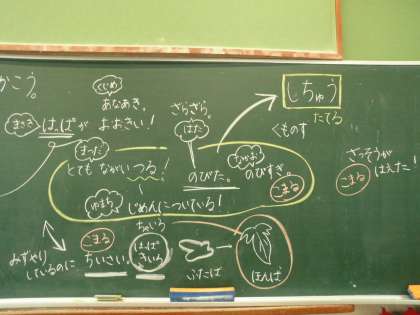 かこう。
くじめ
あなあき。
まさき
はっぱが
おおきい!
ざらざら。
はた
しちゅう
たてる
くものす
まった
とても ながい つる!
のびた。
なかお
のびすぎ。
こまる
ざっそうが
こまる
はえた!
ゆまち
じめんについている!
みずやり
しているのに
こまる
ちいさい。
ちゃいろ
はっぱ
きいろ
ふたば
ほんば